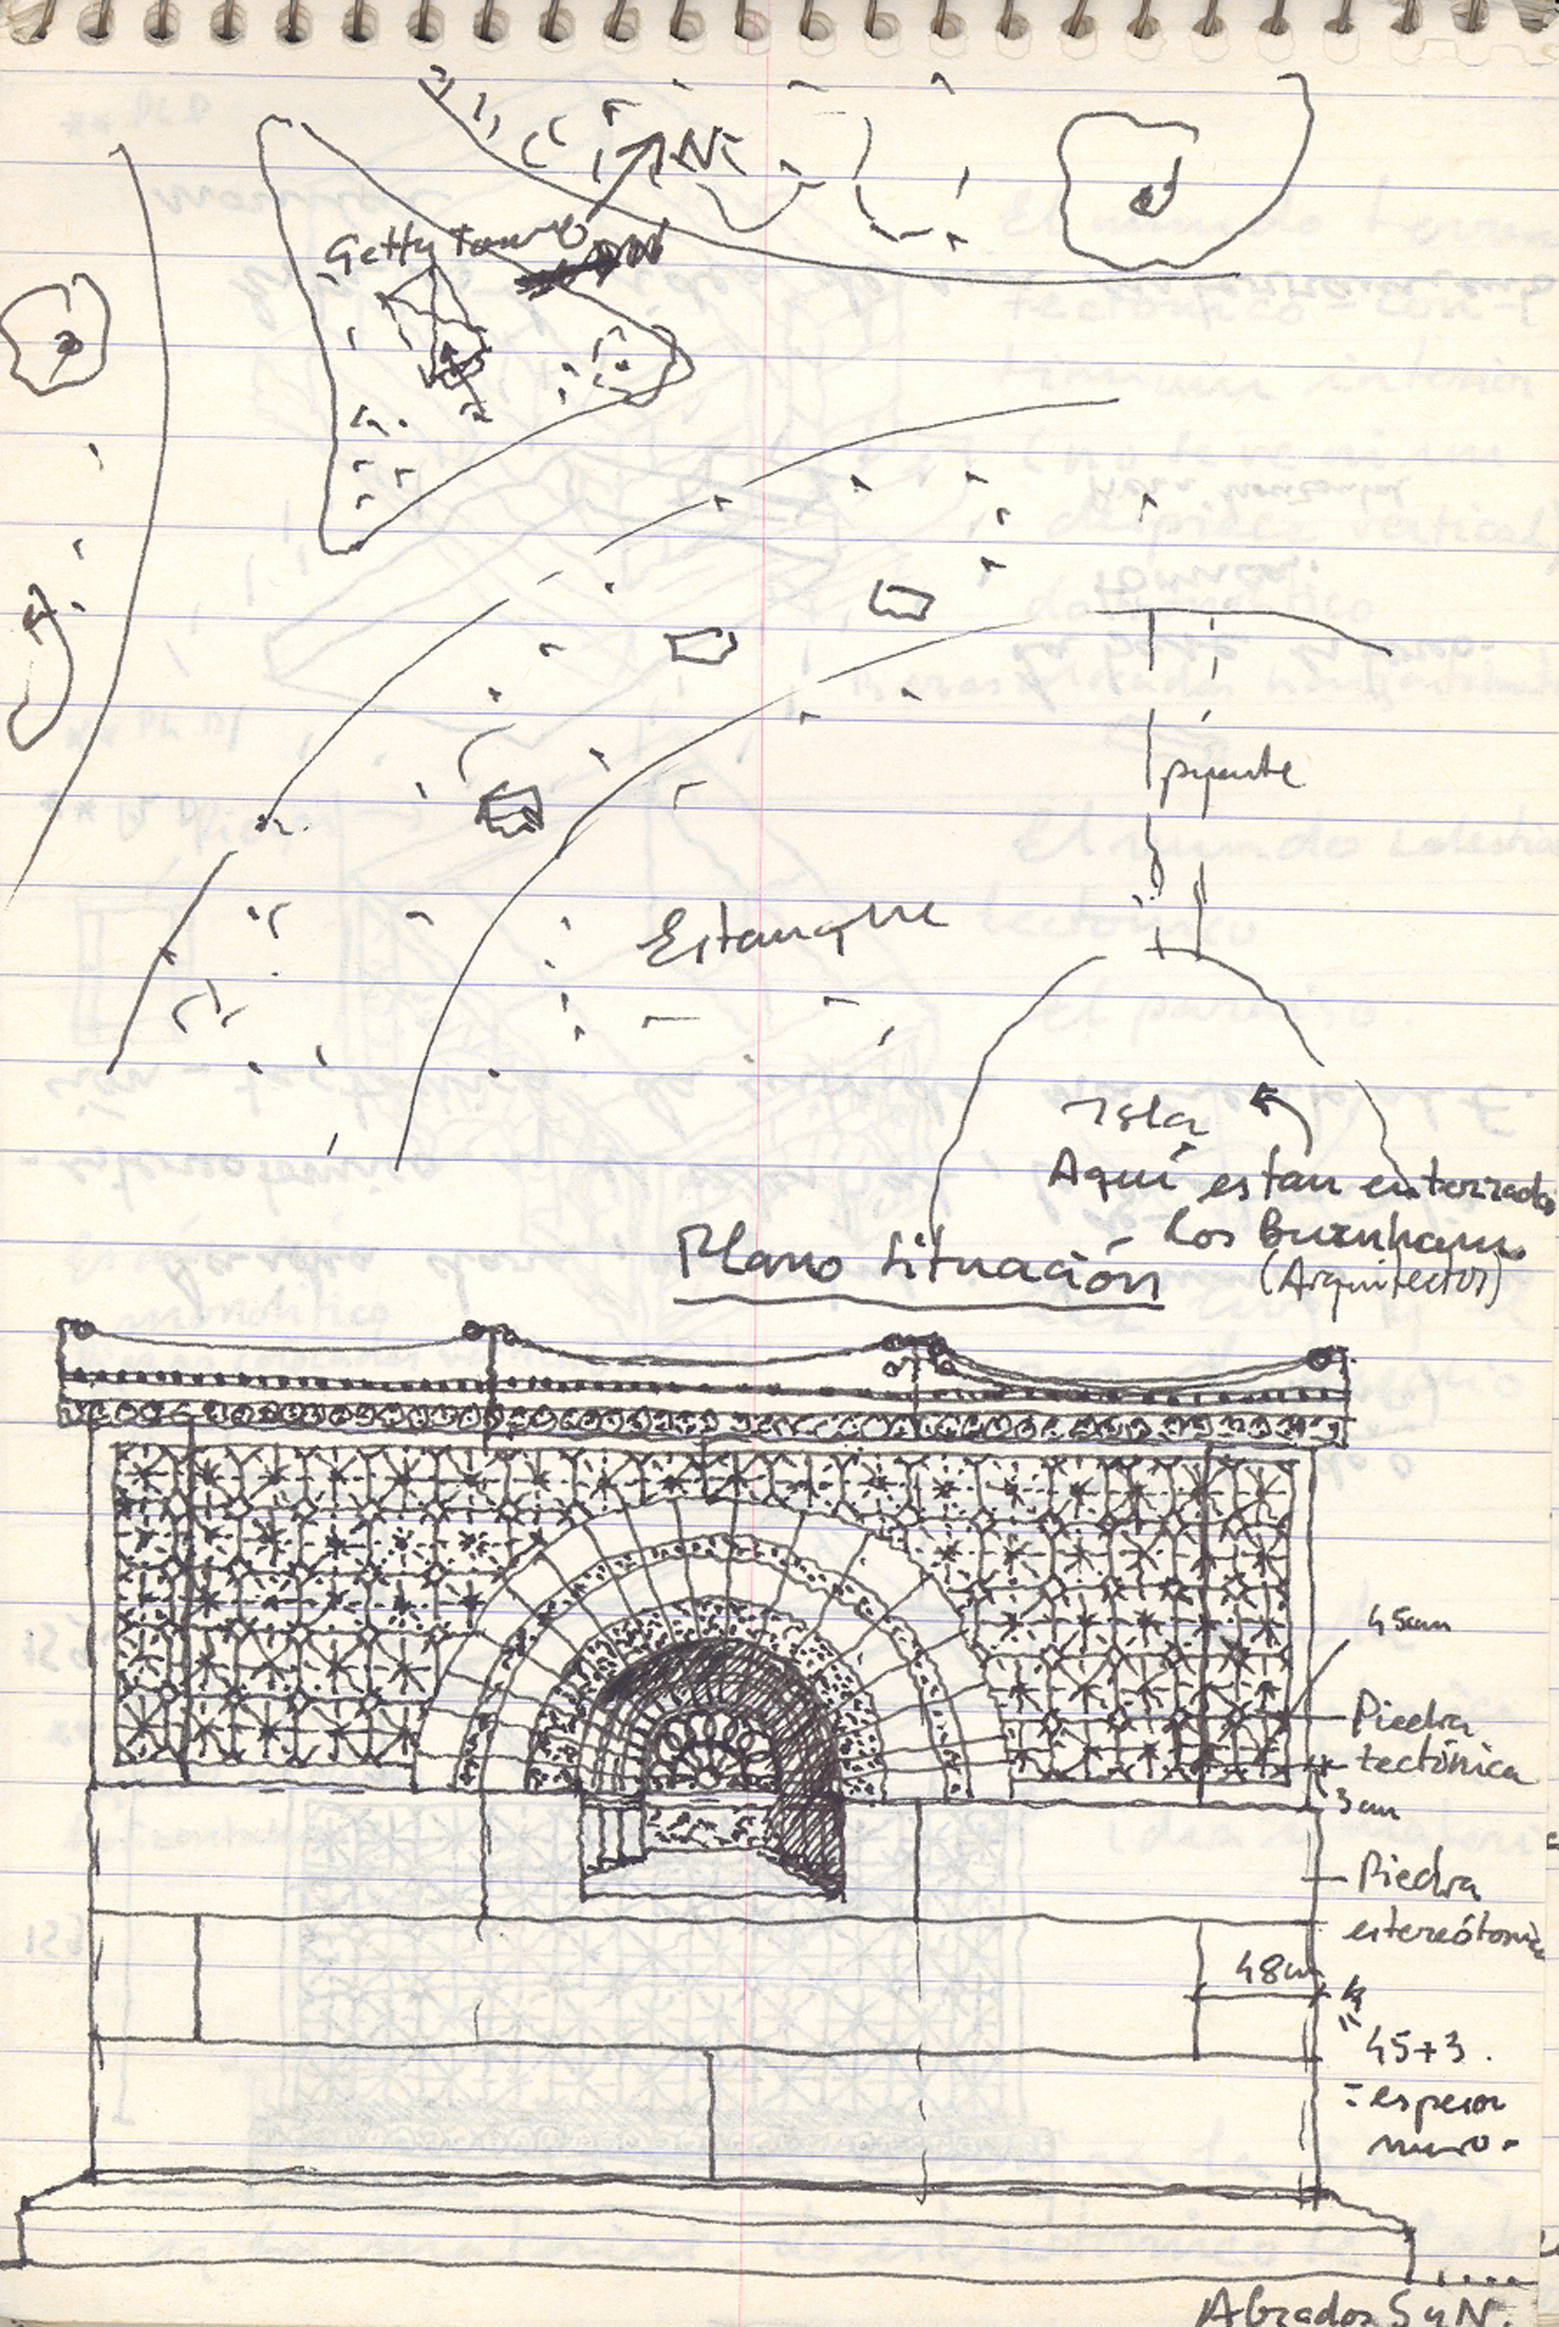 N
Getty Tomb
puente
Estanque
Isla
Aquí estan enterrados
los Burnham.
(Arquitectos)
Plano situación
45cm
Piedra
tectónica
3cm
Piedra
estereótomica
48cm
45+3.
= espesor
muro.
Alzados S y N.